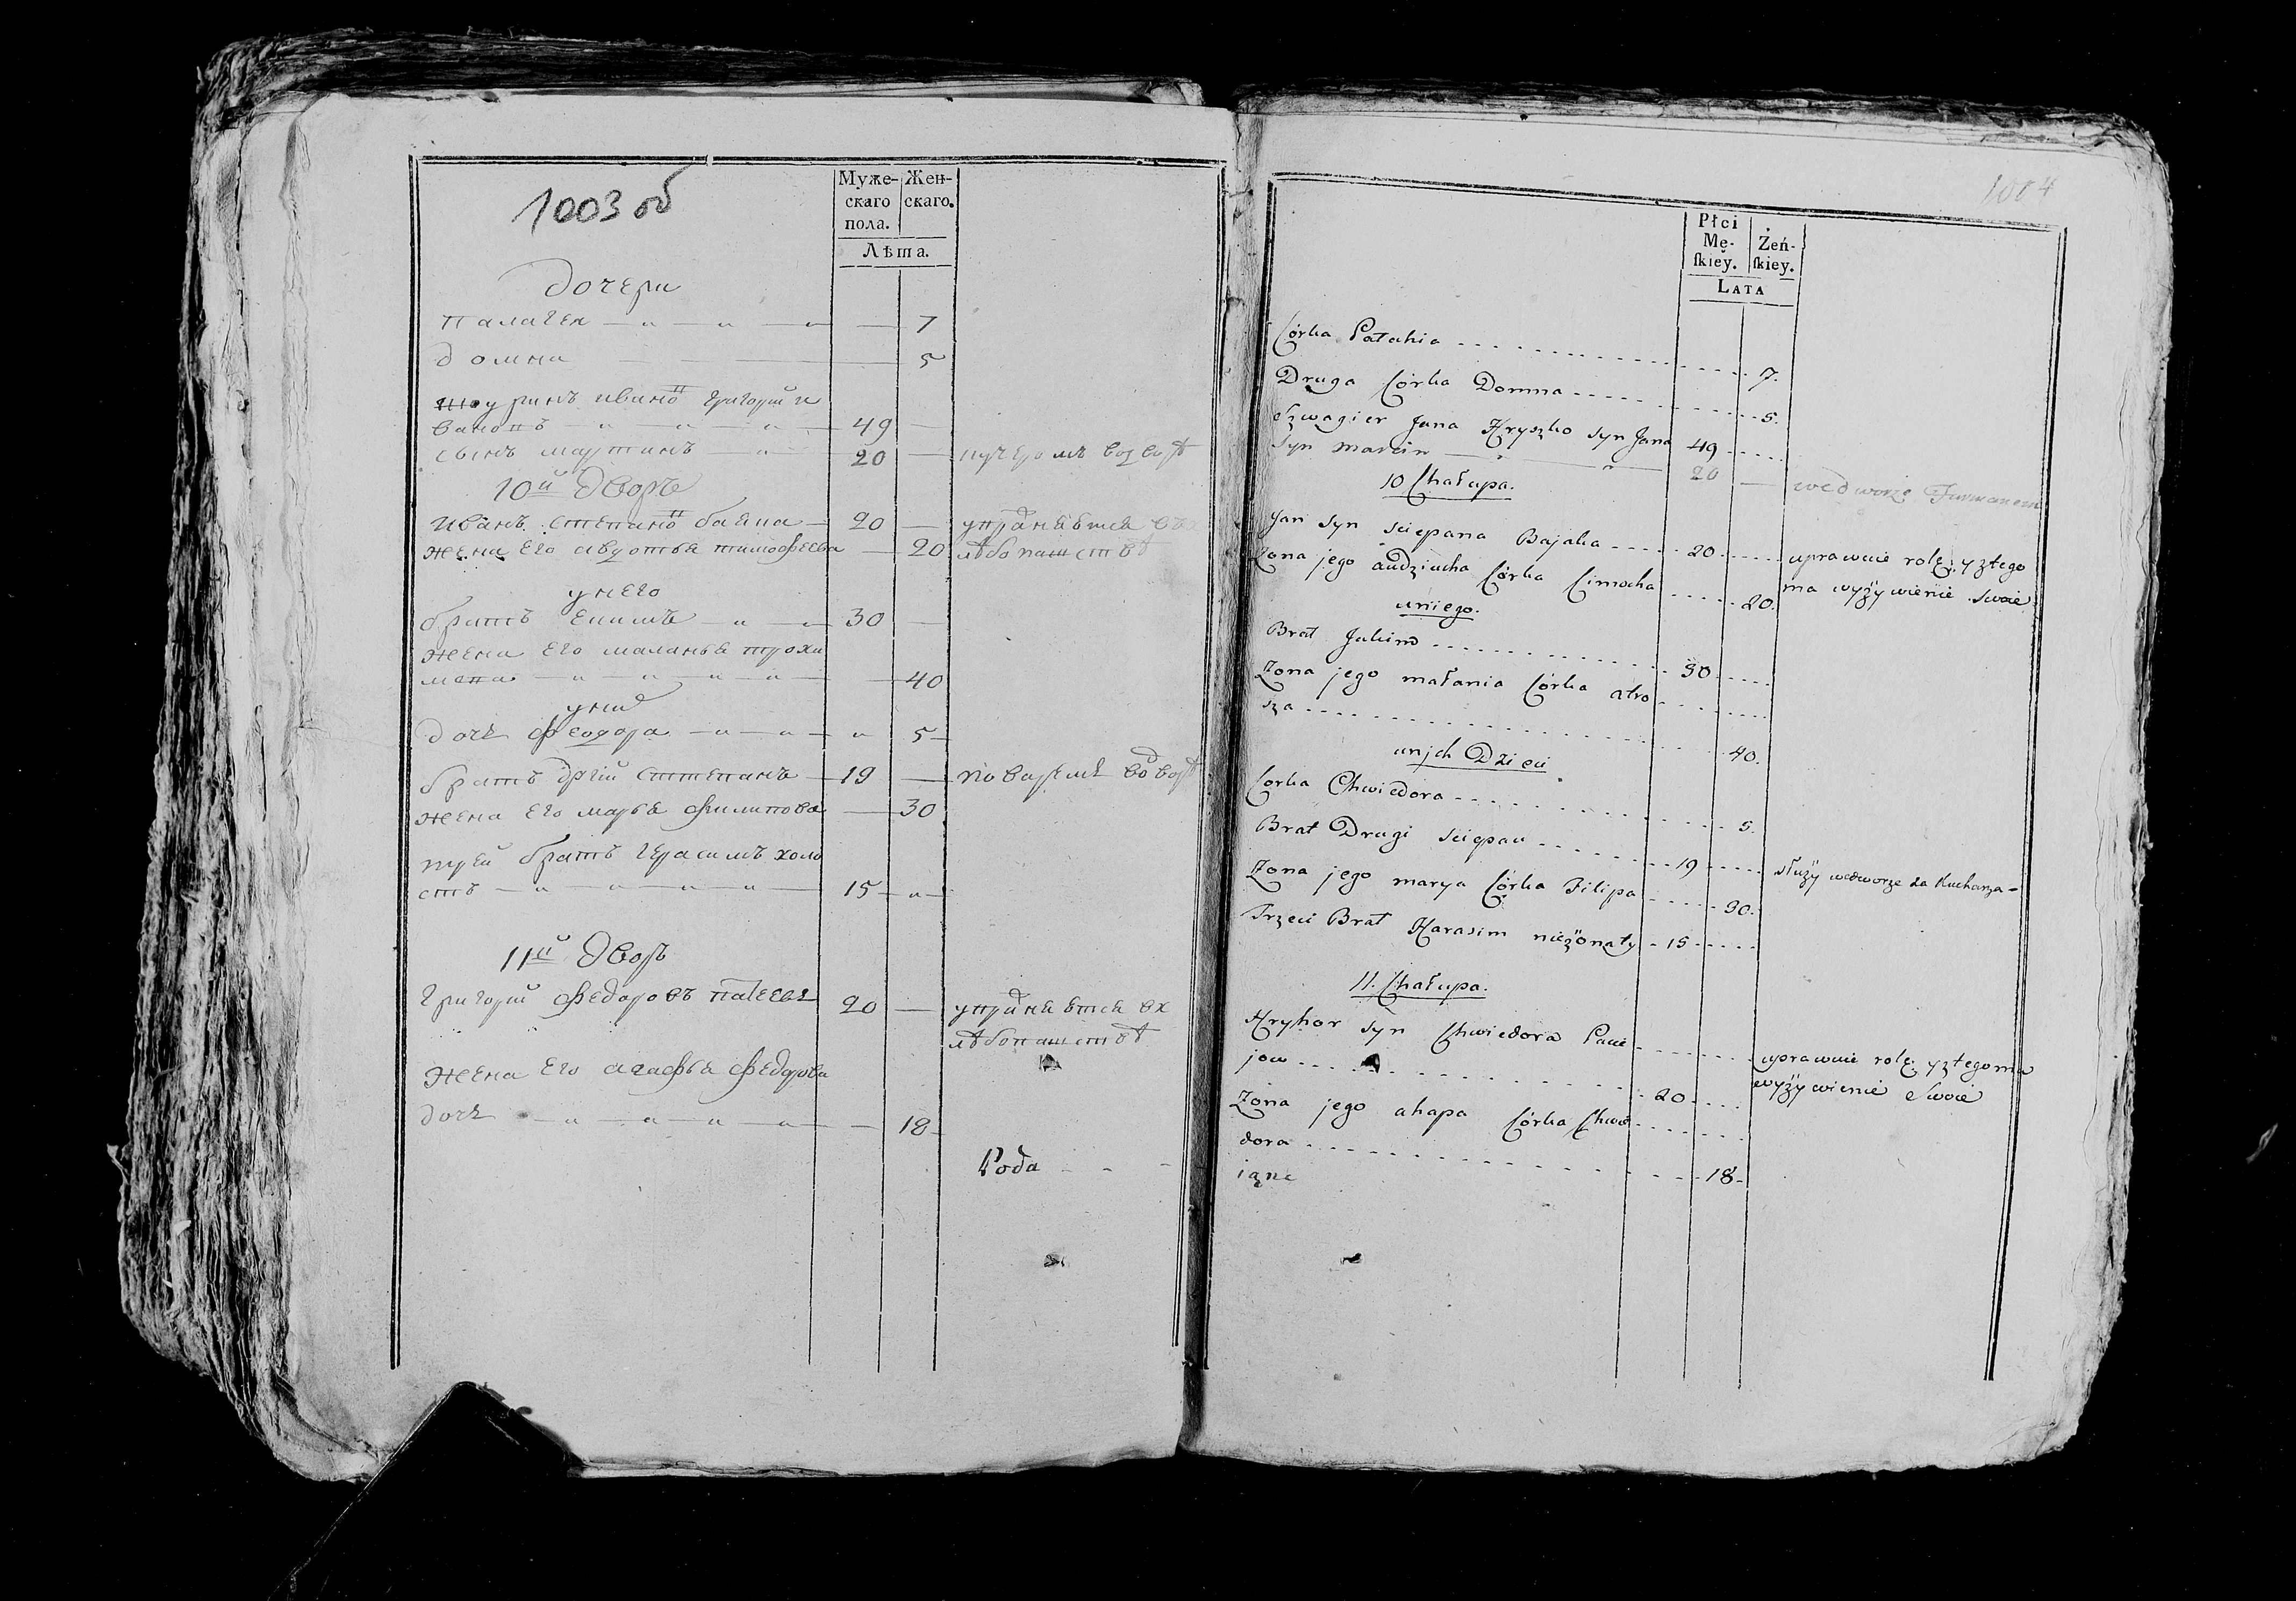 1003 об
Муже-
скаго
пола.
Жен-
скаго.
Лѣта.
дочери
Палагея 7
Домна 5
Шуринъ Григорій И
вановъ 49
сынъ мартинъ 20
10й дворъ
Иванъ Степанов баяка 20
жена его авдотья тимофеева 20
лѣбопашствѣ
у него
братъ Екимъ 30
жена его маланья трохи
мова 40
дочь феодора 5
братъ другій степанъ 19
жена его марья филипова 30
третей братъ герасимъ холо
стъ 15
11й дворъ
григорій федоровъ 20
упражняется вх
лѣбопашствѣ
жена его агафья федорова
дочь 18
Года
1004
Płci
Mę-
ſkiey.
Żeń-
ſkiey.
LATA
Córka Pałahia 7.
Druga Córka Domna 5.
Szwagier Jana Hryszko syn Jana 49
Syn marcin 20 wedworze Furmanem
10 Chałupa.
Jan syn sciepana Bajaka 20 uprawuie rolę: y ztego
Zona jego audziucha Córka Cimocha 20. ma wyżywienie swoie
uniego.
Brat Jakim 30
Zona jego małania Córka atro
sza 40.
unjch Dzieci
Corka Chwiedora 5.
Brat Drugi sciepan 19 służy wedworze za Kucharza
Zona jego marya Córka Filipa 30.
Trzeci Brat Harasim nieżonaty 15
11. Chałupa.
Hryhor syn Chwiedora Pacie
jow 20 uprawuie rolę: y ztego ma
wyżywienie Swoie
Zona jego ahapa Córka Chwie
dora 18